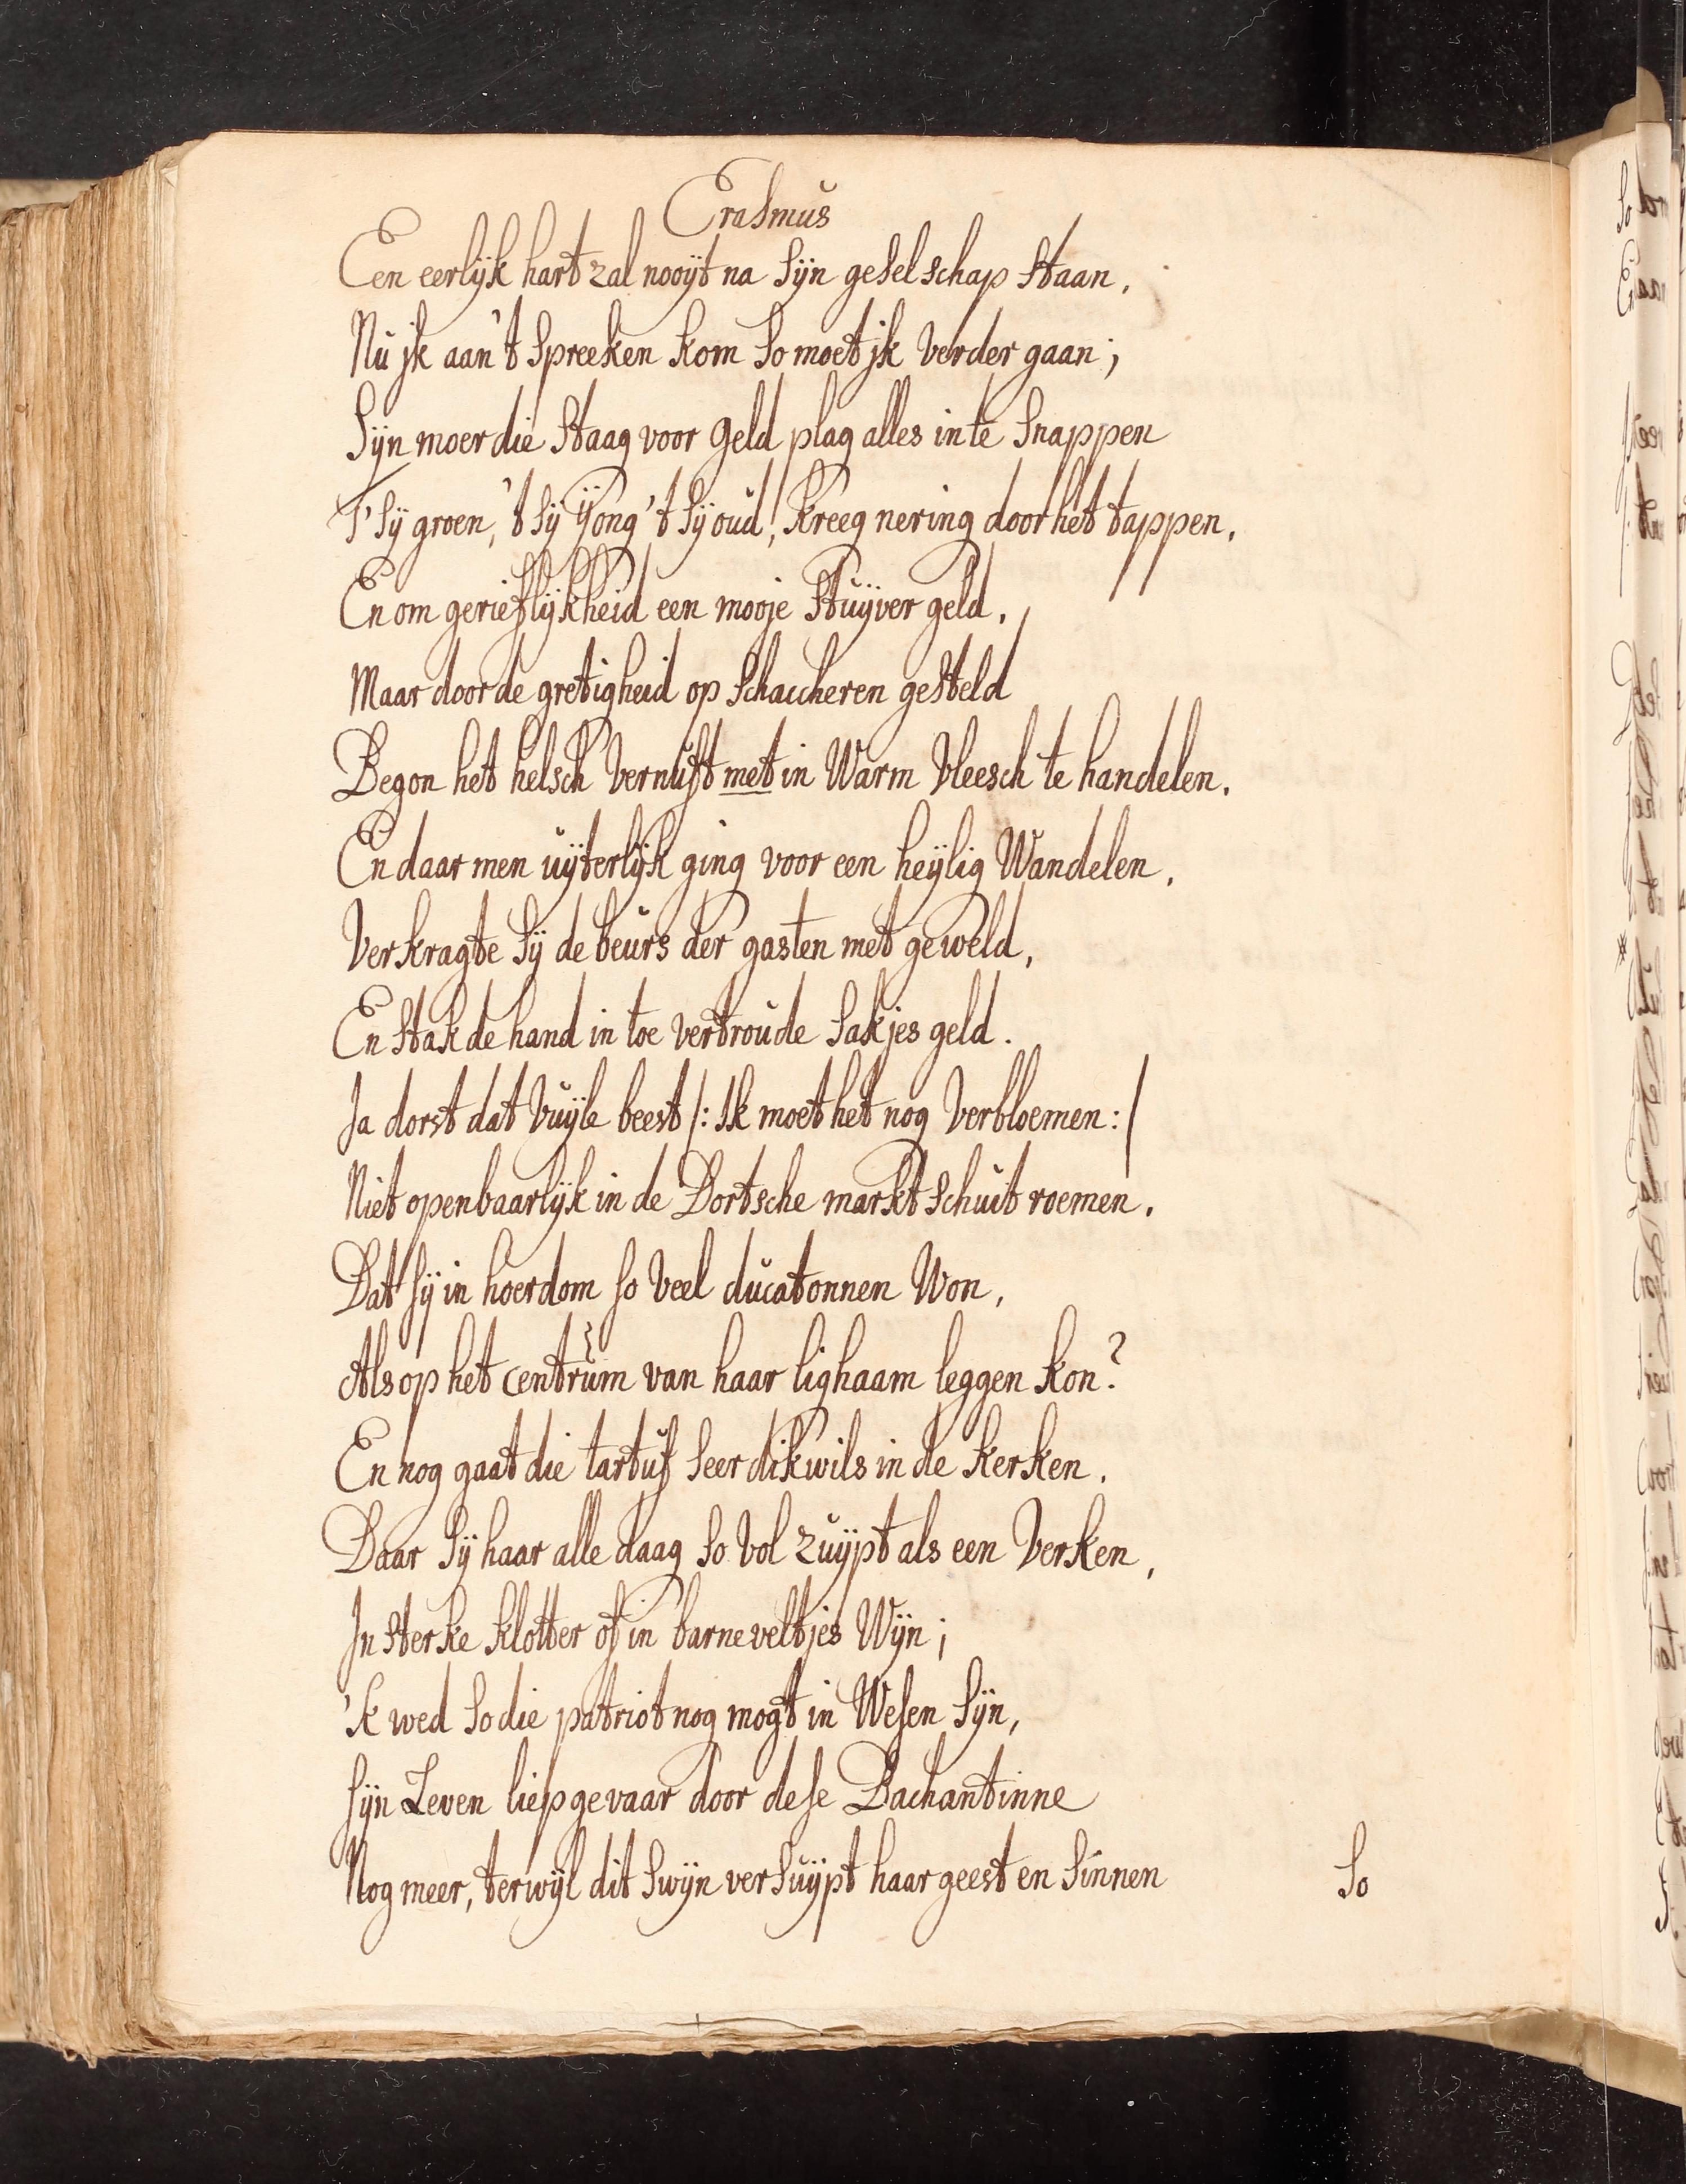 Erasmus
Een eerlÿk hart zal nooÿt na sÿn geselschap staan,
Nu jk aan't spreeken kom so moet jk verder gaan;
Sÿn moer die staag voor geld plag alles in te snappen
T' sÿ groen, 't sÿ ÿong 't sÿ oud, kreeg nering door het tappen,
En om gerieflÿkheid een mooje stuÿver geld,
Maar door de gretigheid op schaccheren gesteld
Begon het helsch vernuft met in Warm vleesch te handelen,
En daar men uÿterlÿk ging voor een heÿlig Wandelen,
Verkragte sÿ de beurs der gasten met geweld,
En stak de hand in toe vertroude sakjes geld.
Ja dorst dat vuÿle beest /: Ik moet het nog verbloemen :/
Niet openbaarlÿk in de Dortsche markt schuit roemen,
Dat sÿ in hoerdom so veel ducatonnen Won,
Als op het centrum van haar lighaam leggen kon?
En nog gaat die tartuf seer dikwils in de kerken,
Daar sÿ haar alle daag so vol zuÿpt als een verken,
In sterke klotter of in barneveltjes Wÿn;
'k wed so die patriot nog mogt in Wesen sÿn,
sÿn Leven liep gevaar door dese Bachantinne
Nog meer, terwÿl dit swÿn versuÿpt haar geest en sinnen
So